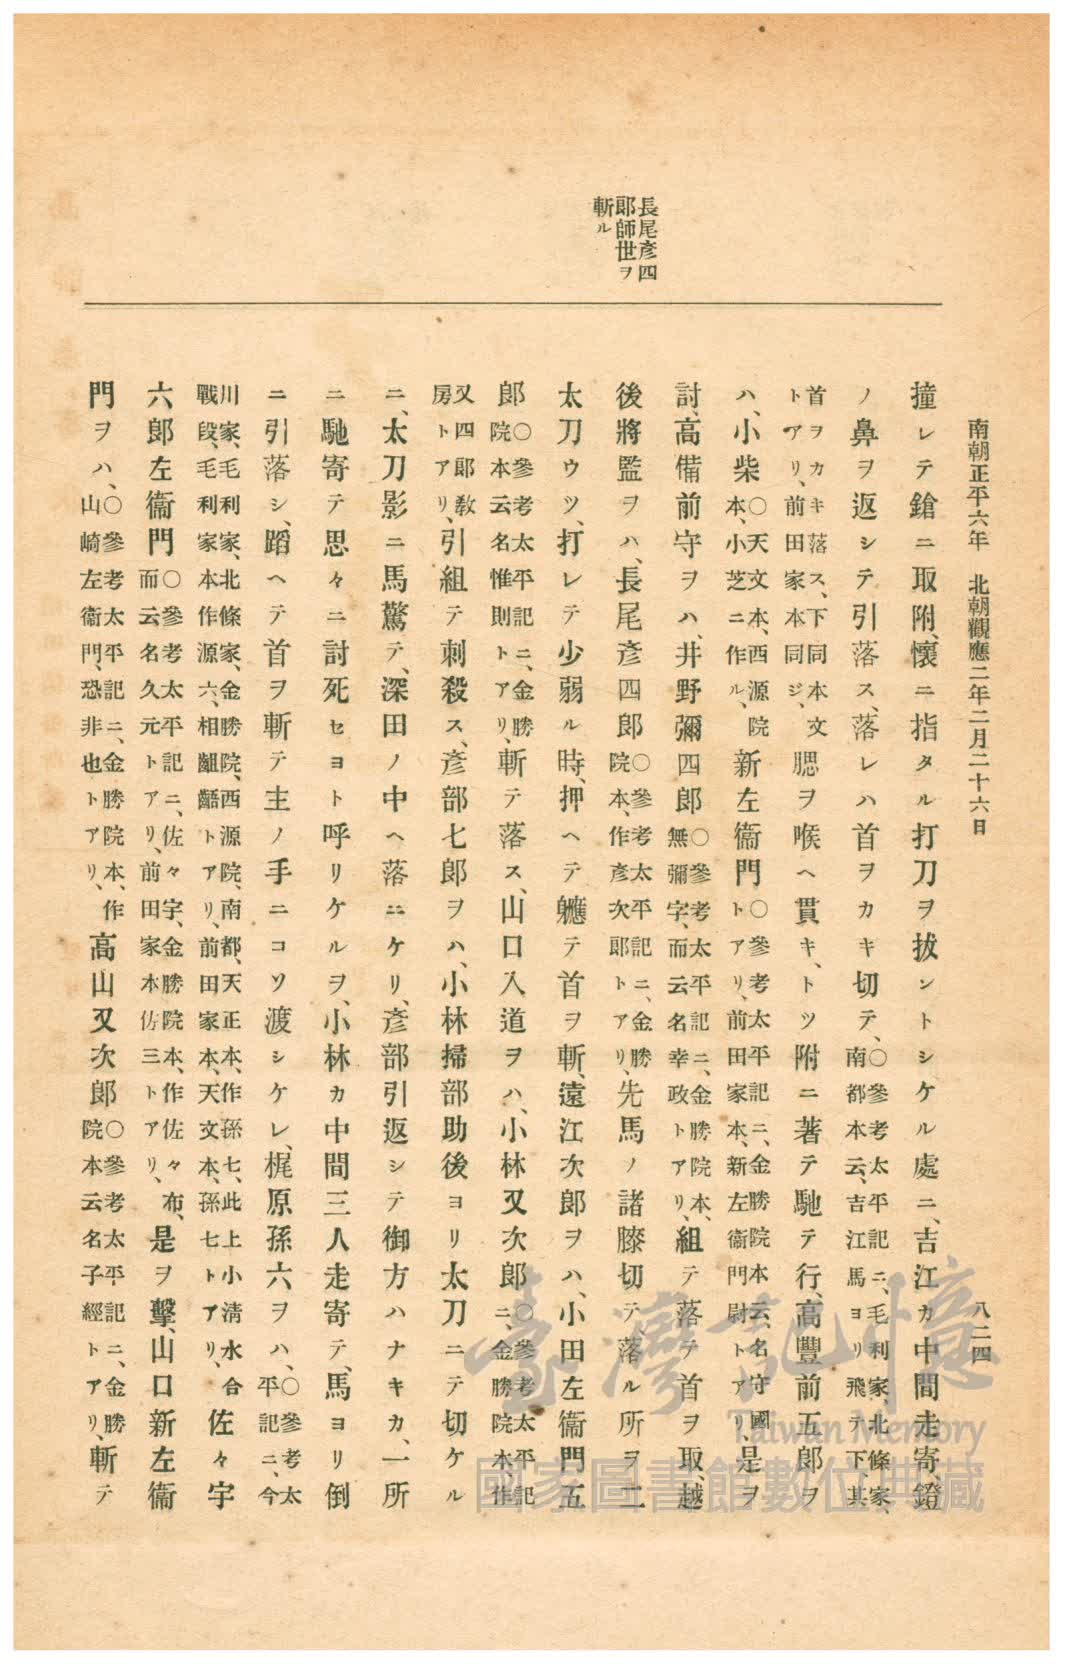 南朝正平六年 北朝觀應二年二月二十六日
八二四
長尾彥四
郎師世ヲ
斬ル
撞レテ鎗ニ取附、懷ニ指タル打刀ヲ拔ントシケル處ニ、吉江カ中間走寄、鐙
ノ鼻ヲ返シテ引落ス、落レハ首ヲカキ切テ、〇參考太平記ニ、毛利家、北條家、南都本云、吉江馬ヨリ飛テ下、其
首ヲカキ落ス、下同本文トアリ、前田家本同ジ、腮ヲ喉ヘ貫キ、トツ附ニ著テ馳テ行、高豐前五郎ヲ
ハ、小柴〇天文本、西源院本、小芝ニ作ル、新左衞門〇參考太平記ニ、金勝院本云、名守國トアリ、前田家本、新左衞門尉トアリ、是ヲ
討、高備前守ヲハ、井野彌四郎〇參考太平記ニ、金勝院本、無彌字、而云名幸政トアリ、組テ落テ首ヲ取、越
後將監ヲハ、長尾彥四郎〇參考太平記ニ、金勝院本、作彥次郎トアリ、先馬ノ諸膝切テ、落ル所ヲ二
太刀ウツ、打レテ少弱ル時、押ヘテ軈テ首ヲ斬、遠江次郎ヲハ、小田左衞門五
郎〇參考太平記ニ、金勝院本云名惟則トアリ、斬テ落ス、山口入道ヲハ、小林又次郎〇參考太平記ニ、金勝院本、作
又四郎敎房トアリ、引組テ刺殺ス、彥部七郎ヲハ、小林掃部助後ヨリ太刀ニテ切ケル
ニ、太刀影ニ馬驚テ、深田ノ中ヘ落ニケリ、彥部引返シテ御方ハナキカ、一所
ニ馳寄テ思々ニ討死セヨト呼リケルヲ、小林カ中間三人走寄テ、馬ヨリ倒
ニ引落シ、蹈ヘテ首ヲ斬テ主ノ手ニコソ渡シケレ、梶原孫六ヲハ、〇參考太平記ニ、今
川家、毛利家、北條家、金勝院、西源院、南都、天正本、作孫七、此上小淸水合戰段、毛利家本作源六、相齟齬トアリ、前田家本、天文本、孫七トアリ、佐々宇
六郎左衞門〇參考太平記ニ、佐々宇、金勝院本、作佐々布、而云名久元トアリ、前田家本佐三トアリ、是ヲ擊、山口新左衞
門ヲハ、〇參考太平記ニ、金勝院本、作山崎左衞門、恐非也トアリ、高山又次郎〇參考太平記ニ、金勝院本云名子經トアリ、斬テ
臺灣記憶
Taiwan Memory
國家圖書館數位典藏